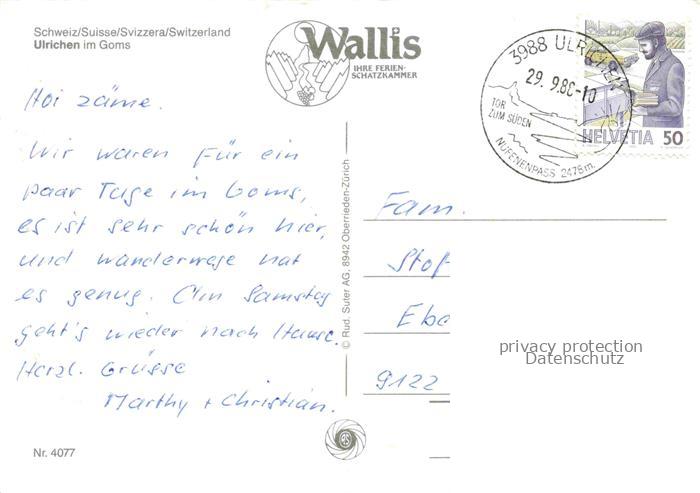 Schweiz/Suisse/Svizzera/Switzerland
Ulrichen im Goms
Wallis
IHRE FERIEN-
SCHATZKAMMER
3988 ULRICHEN
29.9.88-10
TOR
ZUM SÜDEN
NUFENENPASS 2478 m.
HELVETIA 50
Hoi zäme.
Wir waren für ein
paar Tage im Goms,
es ist sehr schön hier,
und wanderwege hat
es genug. Am Samstag
geht's wieder nach Hause.
Herzl. Grüsse
Marthy + Christian.
© Rud. Suter AG, 8942 Oberrieden-Zürich
Fam.
Stof
Ebe
9122
privacy protection
Datenschutz
Nr. 4077